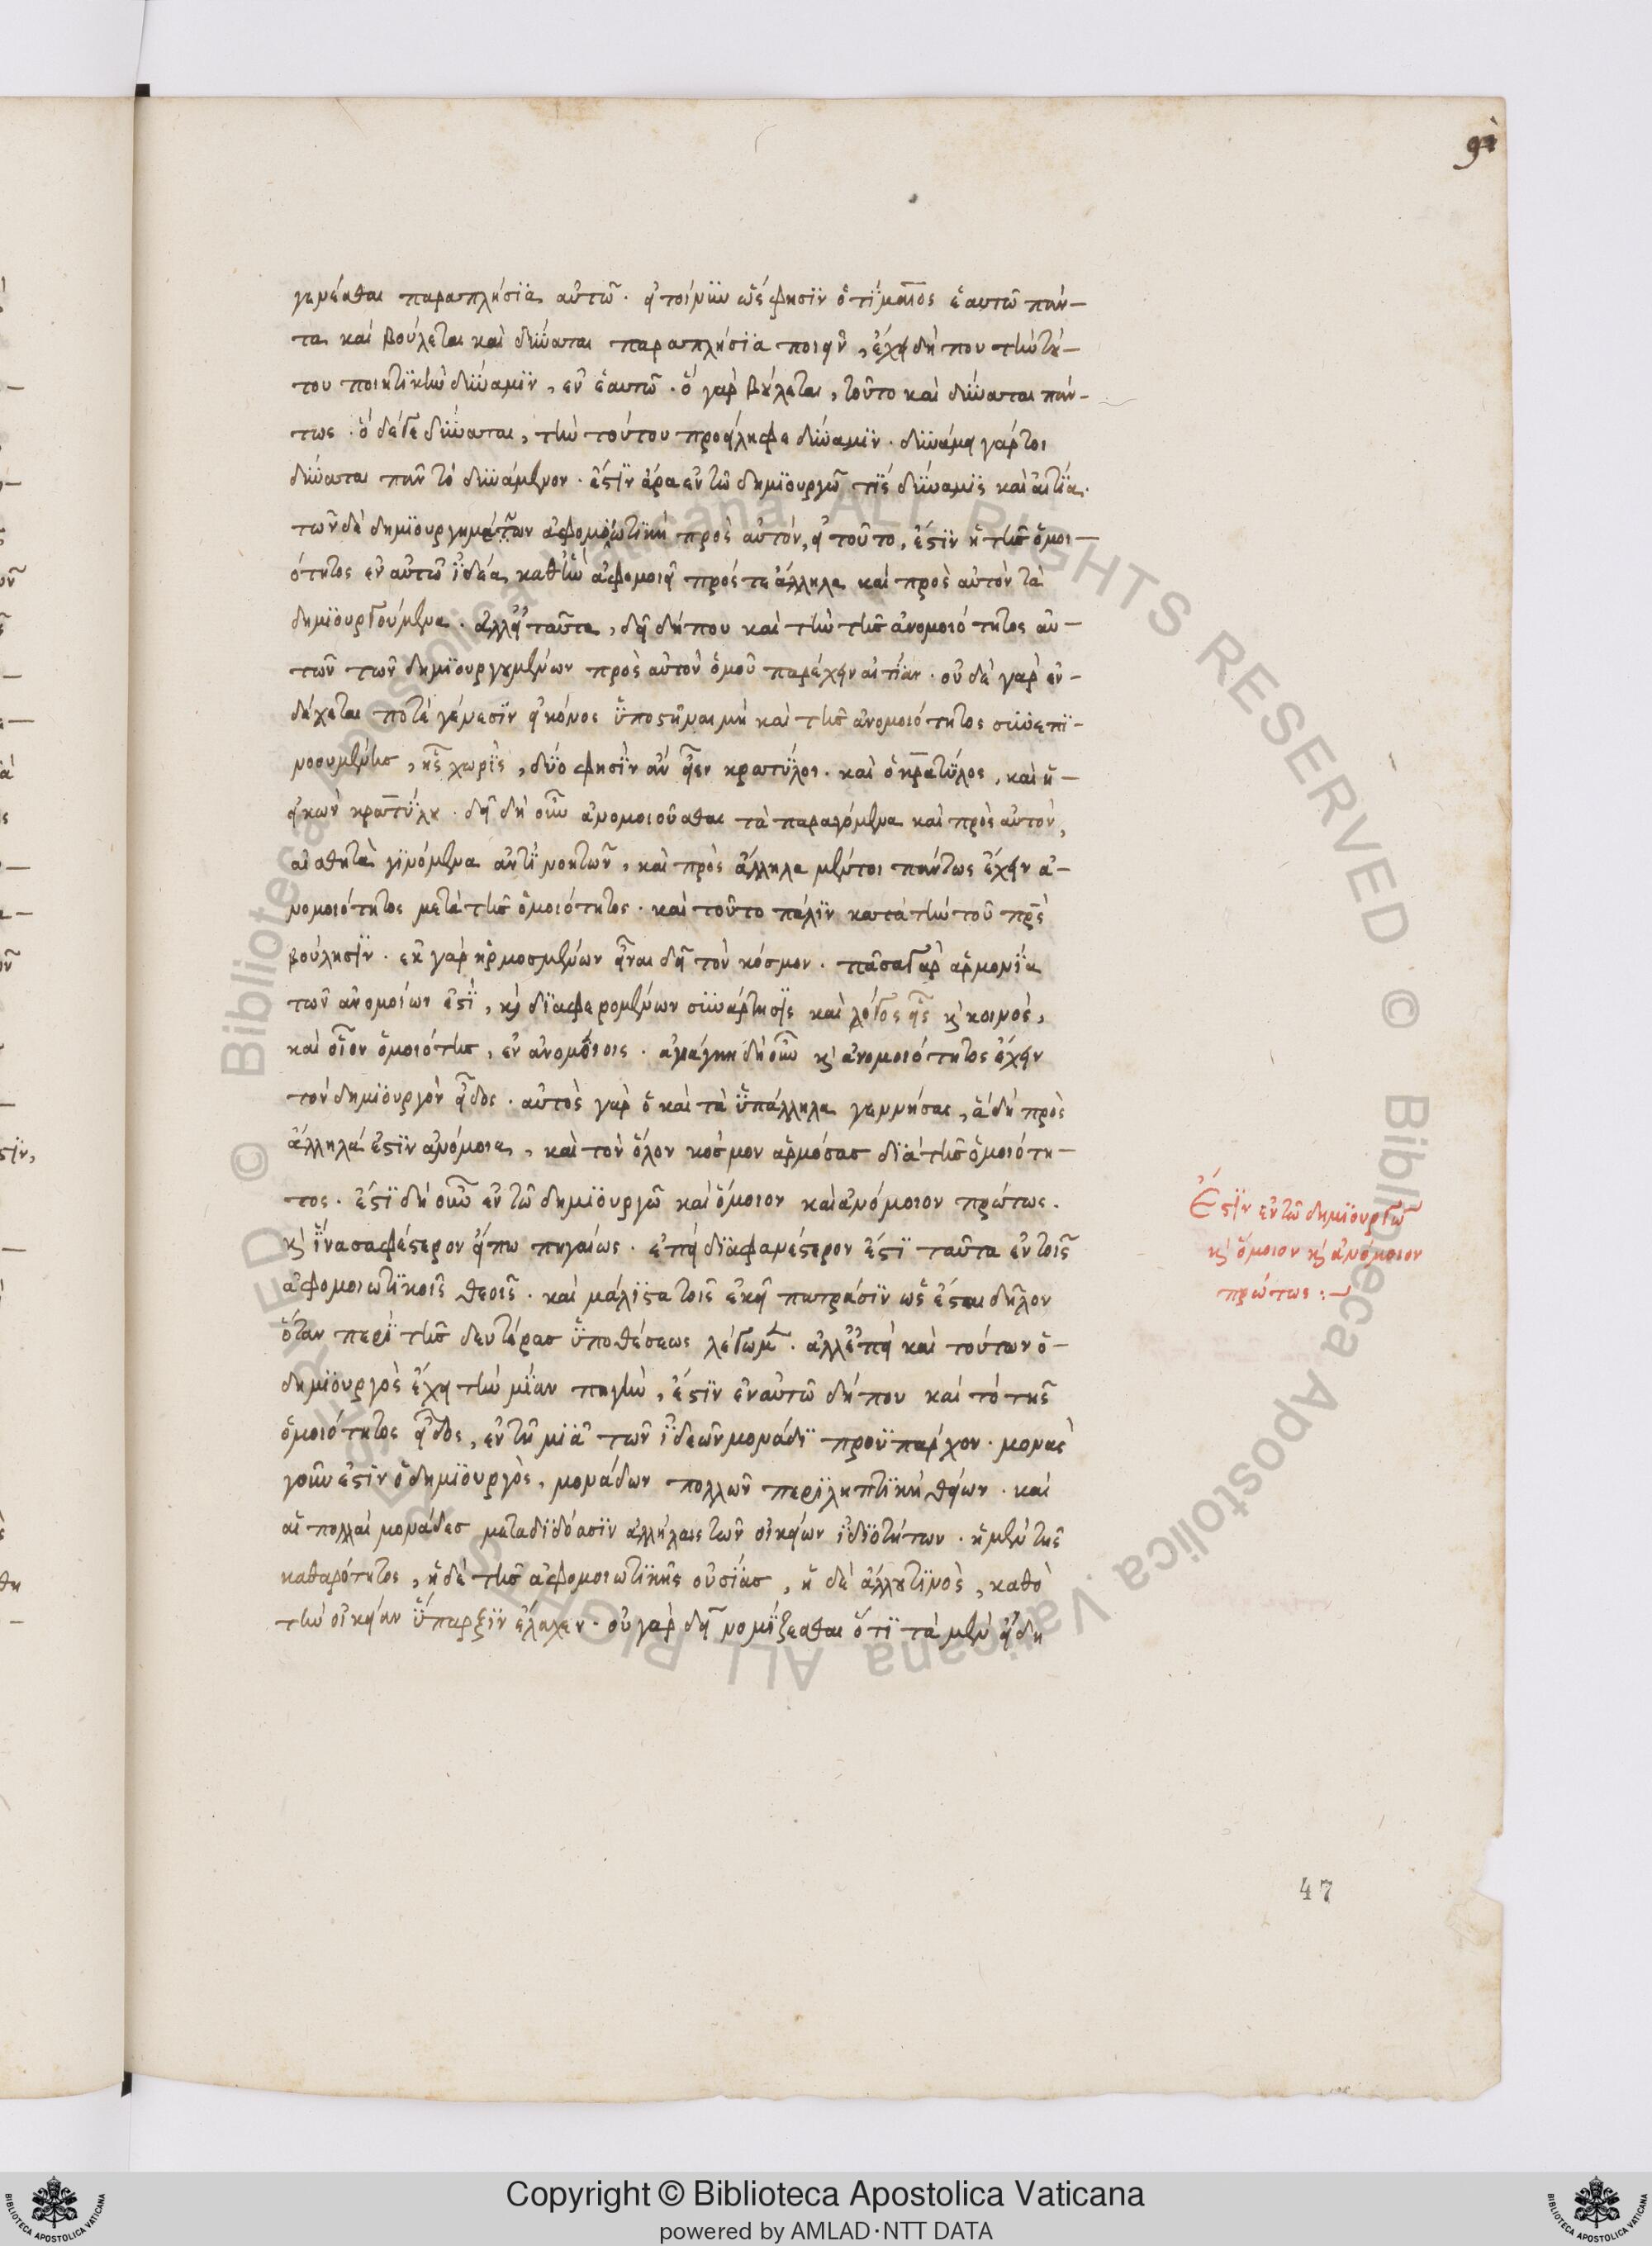 91
γενέσθαι παραπλήσια αὐτῶ. εἰ τοίνυν ὥς φησιν ὁ τίμαιος ἑαυτῶ πάν-
τα καὶ βούλεται καὶ δύναται παραπλήσια ποιεῖν, ἔχει δή που τὴν τού-
του ποιητικὴν δύναμιν, ἐν ἑαυτῶ. ὃ γὰρ βούλεται, τοῦτο καὶ δύναται πάν-
τως. ὃ δέ γε δύναται, τὴν τούτου προείληφε δύναμιν. δυνάμει γάρ τοι
δύναται πᾶν τὸ δυνάμενον. ἔστιν ἄρα ἐν τῶ δημιουργῶ τίς δύναμις καὶ αἰτία.
τῶν δὲ δημιουργημάτων ἀφομοιωτικὴ πρὸς αὐτόν, εἰ τοῦτο, ἔστιν ἡ τῆς ὁμοι-
ότητος ἐν αὐτῶ ἰδέα, καθ' ἣν ἀφομοιεῖ πρός τε ἄλληλα καὶ πρὸς αὐτὸν τὰ
δημιουργούμενα. ἀλλ' εἰ ταῦτα, δεῖ δήπου καὶ τὴν τῆς ἀνομοιότητος αὐ-
τῶν τῶν δημιουργουμένων πρὸς αὐτὸν ὁμοῦ παρέχειν αἰτίαν. οὐδὲ γὰρ ἐν-
δέχεται ποτὲ γένεσιν εἰκόνος ὑποστῆναι μὴ καὶ τῆς ἀνομοιότητος συνεπι-
νοουμένης, ἧς χωρὶς, δύο φησὶν ἂν εἶεν κρατύλοι. καὶ ὁ κρατύλος, καὶ ἡ
εἰκὼν κρατύλου. δεῖ δὴ οὖν ἀνομοιοῦσθαι τὰ παραγόμενα καὶ πρὸς αὐτὸν,
αἰσθητὰ γινόμενα ἀντὶ νοητῶν, καὶ πρὸς ἄλληλα μέντοι πάντως ἔχειν ἀ-
νομοιότητος μετὰ τῆς ὁμοιότητος. καὶ τοῦτο πάλιν κατὰ τὴν τοῦ πρς
βούλησιν. ἐκ γὰρ ἡρμοσμένων εἶναι δεῖ τὸν κόσμον. πᾶσα γὰρ ἁρμονία
τῶν ἀνομοίων ἐστὶ, καὶ διαφερομένων συνάρτησις καὶ λόγος εἷς καὶ κοινὸς,
καὶ οἷον ὁμοιότης, ἐν ἀνομοίοις. ἀνάγκη δὴ οὖν καὶ ἀνομοιότητος ἔχειν
τὸν δημιουργὸν εἶδος. αὐτὸς γὰρ ὁ καὶ τὰ ὑπάλληλα γεννήσας, ἃ δὴ πρὸς
ἄλληλά ἐστιν ἀνόμοια, καὶ τὸν ὅλον κόσμον ἁρμόσας διὰ τῆς ὁμοιότη-
τος. ἔστι δὴ οὖν ἐν τῶ δημιουργῶ καὶ ὅμοιον καὶ ἀνόμοιον πρώτως.
καὶ ἵνα σαφέστερον εἴπω πηγαίως. ἐπεὶ διαφανέστερον ἔστι ταῦτα ἐν τοῖς
ἀφομοιωτικοῖς θεοῖς. καὶ μάλιστα τοῖς ἐκεῖ πατράσιν ὡς ἔσται δῆλον
ὅταν περὶ τῆς δευτέρας ὑποθέσεως λέγωμεν. ἀλλ' ἐπεὶ καὶ τούτων ὁ
δημιουργὸς ἔχει τὴν μίαν πηγὴν, ἔστιν ἐν αὐτῶ δήπου καὶ τὸ τῆς
ὁμοιότητος εἶδος, ἐν τῆ μιᾶ τῶν ἰδεῶν μονάδι προϋπάρχον. μονὰς
γοῦν ἐστιν ὁ δημιουργὸς, μονάδων πολλῶν περιληπτικὴ θείων. καὶ
αἱ πολλαὶ μονάδες μεταδιδόασιν ἀλλήλαις τῶν οἰκείων ἰδιοτήτων. ἡ μὲν τῆς
καθαρότητος, ἡ δὲ τῆς ἀφομοιωτικῆς οὐσίας, ἡ δὲ ἄλλου τινὸς, καθὸ
τὴν οἰκείαν ὕπαρξιν ἔλαχεν. οὐ γὰρ δεῖ νομίζεσθαι ὅτι τὰ μὲν εἴδη
Ἔστιν ἐν τῶ δημιουργῶ
καὶ ὅμοιον καὶ ἀνόμοιον
πρώτως :—
47
© Biblioteca Apostolica Vaticana ALL RIGHTS RESERVED
© Biblioteca Apostolica Vaticana ALL RIGHTS RESERVED
Copyright © Biblioteca Apostolica Vaticana
powered by AMLAD·NTT DATA
BIBLIOTECA APOSTOLICA VATICANA
BIBLIOTECA APOSTOLICA VATICANA